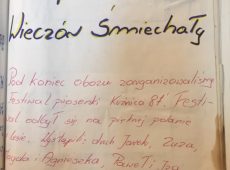 Wieczór Śmiechały
Pod koniec obozu zorganizowaliśmy
Festiwal piosenki Kuźnica 81. Festi-
wal odbył się na pięknej polanie
lesie. Wystąpili: druh Jacek, Zuza,
Agnieszka, Paweł i Iza